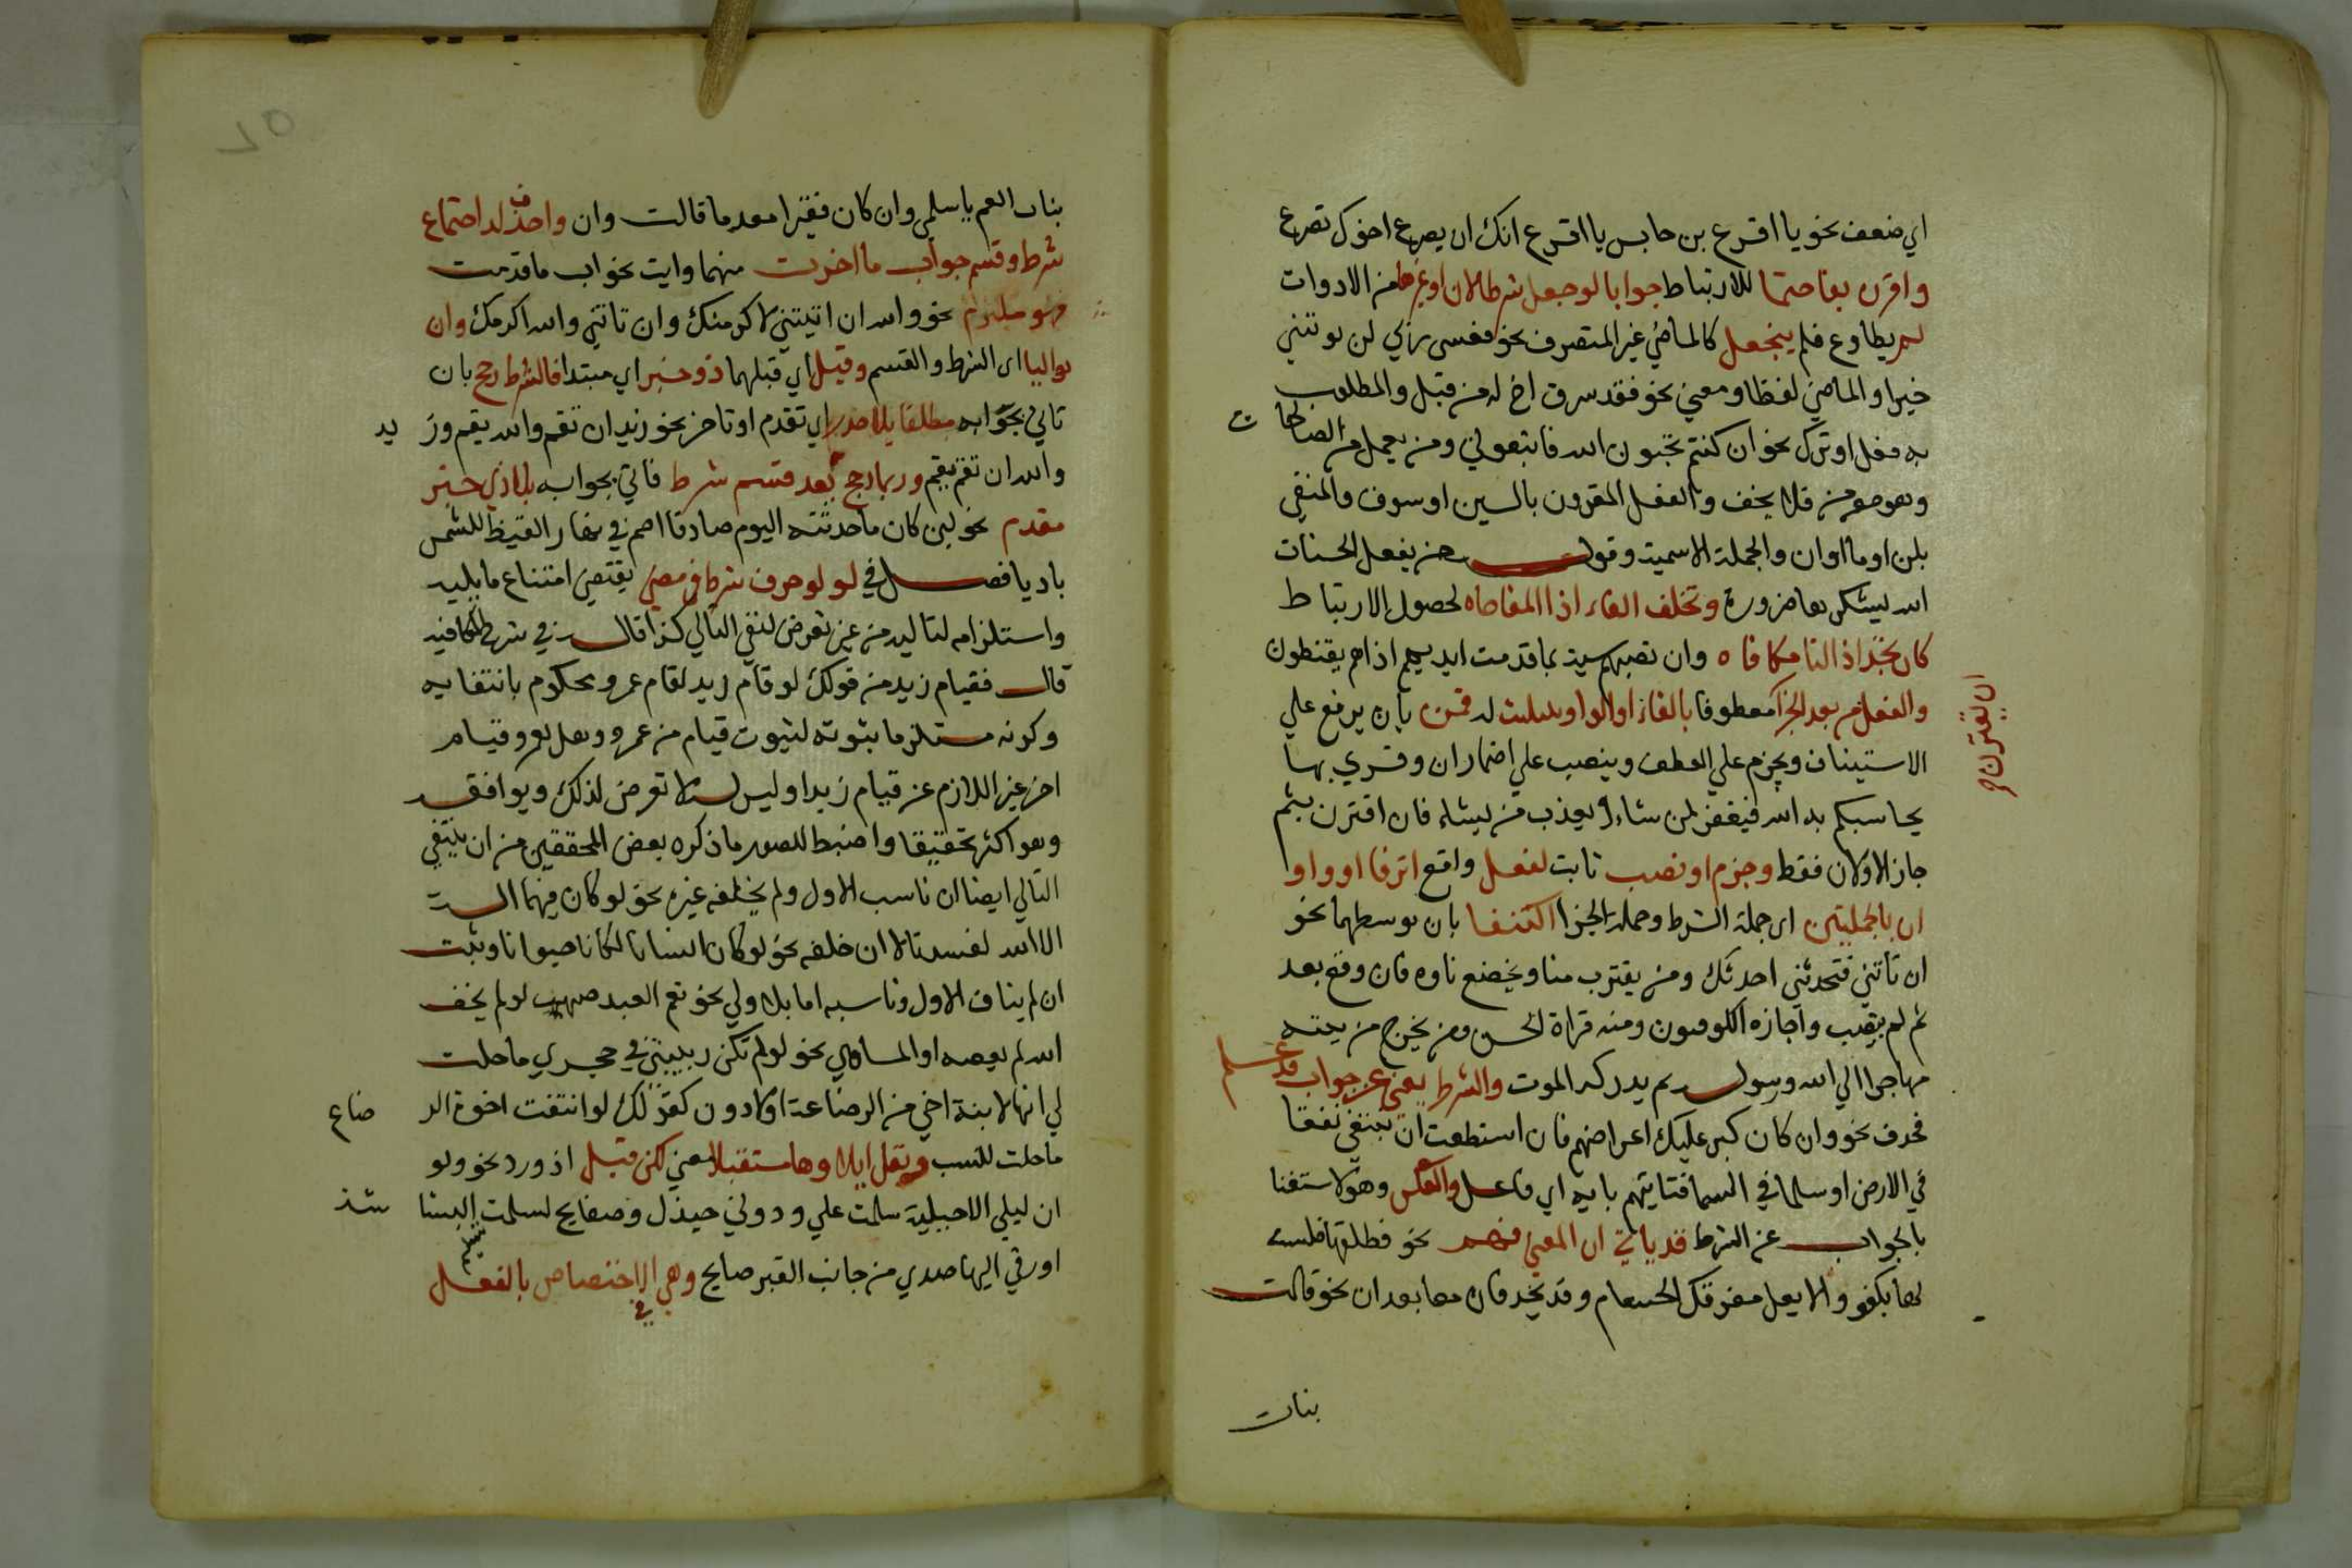 اي ضعف نحو يا اقرع بن حابس يا اقرع انك ان يصرع اخوك تصرع
واقرن بفا حتما للارتباط جوابا لو جعل شرطا لان او غيرها من الادوات
لم يطاوع فلم ينجعل كالماضي غير المتصرف نحو فعسى ربي ان يوتيني
خيرا والماضي لفظا ومعني نحو فقد سرق اخ له من قبل والمطلوب
به فعل او ترك نحو ان كنتم تحبون الله فاتبعوني ومن يعمل من الصالحات
وهو مومن فلا يخف والفعل المقرون بالسين او سوف والمنفي
بلن او ما او ان والجملة الاسمية وقول من يفعل الحسنات
الله يشكرها ضرورة وتخلف الفاء اذا المفاجاه لحصول الارتباط
كان تجد اذا لنا مكافاه وان تصبهم سية بما قدمت ايديهم اذا هم يقنطون
والفعل من بعد الجزا معطوفا بالفاء او الواو بتثليث له قمن بان يرفع علي
الاستيناف ويجزم علي العطف وينصب علي اضمار ان وقري بها
يحاسبكم به الله فيغفر لمن يشاء ويعذب من يشاء فان اقترن بثم
جاز الاولان فقط وجزم او نصب ثابت لفعل واقع اثر فا او واو
ان بالجملتين اي جملة الشرط وجملة الجزا اكتنفا بان توسطهما نحو
ان تاتني فتحدثني احدثك ومن يقترب منا ويخضع ناوه فان وقع بعد
ثم لم ينصب واجازه الكوفيون ومنه قراة الحسن ومن يخرج من بيته
مهاجرا الي الله ورسوله ثم يدركه الموت والشرط يغني عن جواب قد علم
فحذف نحو وان كان كبر عليك اعراضهم فان استطعت ان تبتغي نفقا
في الارض او سلما في السما فتاتيهم باية اي فافعل والعكس وهو الاستغنا
بالجواب عن الشرط قد ياتي ان المعني فهم نحو فطلقها فلست
لها بكفو والا يعل مفرقك الحسام وقد يحذفان معا بعد ان نحو قالت
بنات
ان يقترن
بنات العم يا سلمي وان كان فقيرا معدما قالت وان واحذف لدا اجتماع
شرط وقسم جواب ما اخرت منهما وايت بجواب ما قدمت
فهو ملتزم نحو والله ان اتيتني لاكرمنك وان تاتني والله اكرمك وان
تواليا اي الشرط والقسم وقبل اي قبلهما ذو خبر اي مبتدا فالشرط رجح بان
تاتي بجوابه مطلقا بلا حذر اي تقدم او تاخر نحو زيد ان تقم والله يقم وزيد
والله ان تقم يقم وربما رجح بعد قسم شرط فاتي بجوابه بلا ذي خبر
مقدم نحو لين كان ما حدثته اليوم صادقا اصم في نهار القيظ للشمس
باديا فصل في لو لو حرف شرط في مضي يقتضي امتناع ما يليه
واستلزامه لتاليه من غير تعرض لنفي التالي كذا قال في شرح الكافيه
قال فقيام زيد من قولك لو قام زيد لقام عمرو محكوم بانتفايه
وكونه مستلزما ثبوته لثبوت قيام من عمرو وهل لعمرو قيام
اخر غير اللازم عن قيام زيد او ليس له لا تعرض لذلك ويوافقه
وهو اكثر تحقيقا واضبط للصور ما ذكره بعض المحققين من ان ينتفي
التالي ايضا ان ناسب الاول ولم يخلفه غيره نحو لو كان فيهما الهة
الا الله لفسدتا لا ان خلفه نحو لو كان انسانا لكان حيوانا ويثبت
ان لم يناف الاول وناسبه اما بالاولي نحو نعم العبد صهيب لو لم يخف
الله لم يعصه او المساوي نحو لو لم تكن ربيبتي في حجري ما حلت
لي انها لابنة اخي من الرضاعة او الادون كقولك لو انتفت اخوة الرضاع
ما حلت للنسب ويقل ايلاوها مستقبلا معني لكن قبل اذ ورد نحو ولو
ان ليلي الاخيلية سلمت علي ودوني جندل وصفايح لسلمت تسليم البشاشة
او زقي اليها صدي من جانب القبر صايح وهي في الاختصاص بالفعل